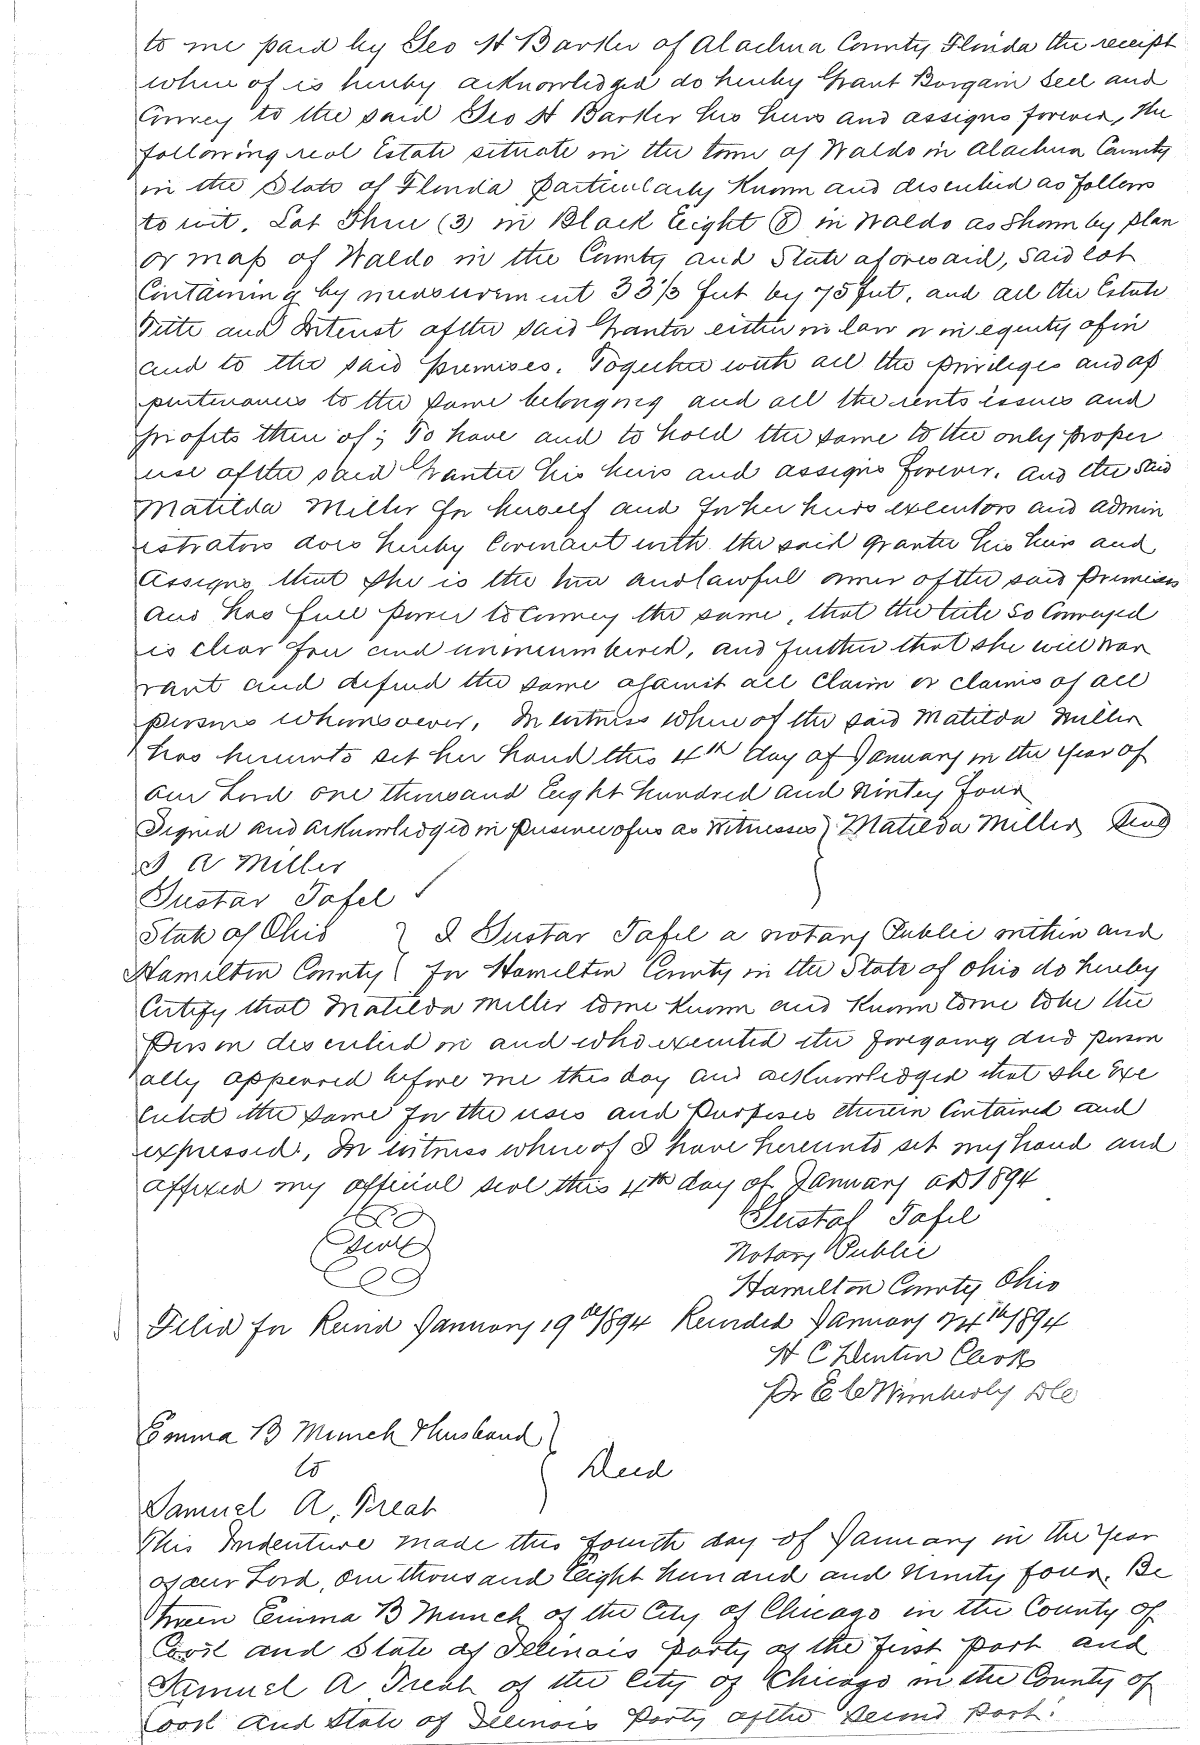 to me paid by Geo H Barker of Alachua County Florida the receipt
where of is hereby acknowledged do hereby Grant Bargain Sell and
Convey to the said Geo H Barker his heirs and assigns forever, the
following real Estate situate in the town of Waldo in Alachua County
in the State of Florida particularly Known and described as follows
to wit. Lot Three (3) in Block Eight (8) in Waldo as Shown by plan
or map of Waldo in the County and State aforesaid, said lot
Containing by measurement 33 1/3 feet by 75 feet, and all the Estate
Title and Interest of the said Grantor either in law or in equity of in
and to the said premises. Together with all the privileges and ap
purtenances to the same belonging and all the rents issues and
profits there of; To have and to hold the same to the only proper
use of the said Grantee his heirs and assigns forever. And the said
Matilda Miller for herself and for her heirs executors and admin
istrators does hereby Covenant with the said grantee his heirs and
Assigns that She is the true and lawful owner of the said Premises
and has full power to Convey the same, that the title so Conveyed
is clear free and unincumbered, and further that she will war
rant and defend the same against all Claim or claims of all
persons whomsoever, In witness where of the said Matilda Miller
has hereunto set her hand this 4th day of January in the Year of
our Lord one thousand Eight hundred and Ninty four
Signed and acknowledged in presence of us as Witnesses } Matilda Miller Seal
A Miller
Gustav Tafel
State of Ohio } I Gustav Tafel a notary Public within and
Hamilton County } for Hamilton County in the State of Ohio do hereby
Certify that Matilda Miller to me Known and Known to me to be the
Person described in and who executed the foregoing deed person
ally appeared before me this day and acknowledged that she Exe
cuted the same for the uses and Purposes therein Contained and
expressed, In witness where of I have hereunto set my hand and
affixed my official seal this 4th day of January AD 1894
Gustaf Tafel
Seal
Notary Public
Hamilton County Ohio
Filed for Record January 19th 1894 Recorded January 24th 1894
H C Denton Clerk
Pr E C Wimberly DC
Emma B Munch & husband }
to } Deed
Samuel A, Treat
This Indenture made this fourth day of January in the Year
of our Lord, one thousand Eight hundred and Ninty four. Be
tween Emma B Munch of the City of Chicago in the County of
Cook and State of Illinois Party of the first part and
Samuel A Treat of the City of Chicago in the County of
Cook and State of Illinois Party of the Second Part.